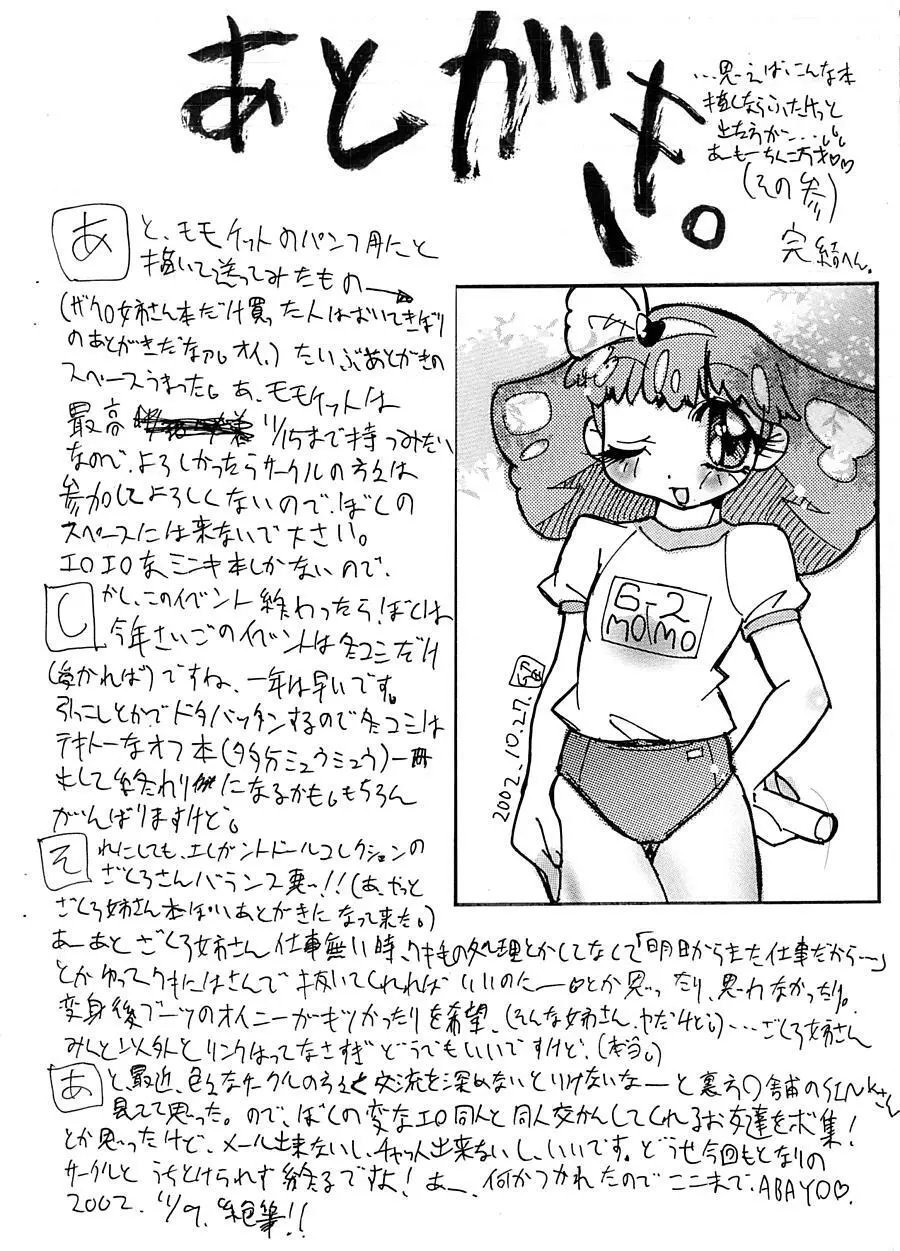 あとがき。
…思えばこんな本
描くならふたけっと
出たろうかー…
あーもーちんこ万才♡♡
(その参)
完結へん。
あと、モモケットのパンフ用にと
描いて送ってみたもの→
(ザクロ姉さん本だけ買った人はおいてきぼり
のあとがきだなァ。オイ。)たいぶあとがきの
スペースうまった。あ、モモケットは
最高 11/15まで持つみたい
なので、よろしかったらサークルの方々は
参加してよろしくないので、ぼくの
スペースには来ないで下さい。
エロエロなミンキ本しかないので、
しかし、このイベント終わったら、ぼくは
今年さいごのイベントは冬コミだけ
(受かれば)ですね、一年は早いです。
引っこしとかでドタバッタンするので冬コミは
テキトーなオフ本(多分ミュウミュウ)一冊
出して終わりになるかも。もちろん
がんばりますけど。
それにしても、エレガントドールコレクションの
ざくろさんバランス悪っ!!(あ、やっと
ざくろ姉さん本ぽいあとがきになって来た。)
あーあとざくろ姉さん仕事無い時、ワキ毛の処理とかしてなくて「明日からまた仕事だから…」
とかゆってワキにはさんで抜いてくれればいいのにーとか思ったり、思わなかったり。
変身後ブーツのオイニーがキツかったりを希望、(そんな姉さん、ヤだけど。)…ざくろ姉さん
みんと以外とリンクはってなさすぎ どうでもいいですけど、(本当。)
あと、最近、色々なサークルの方々と交流を深めないといけないなーと裏方〇舗のSINKさん
見てて思った。ので、ぼくの変なエロ同人と同人交かんしてくれるお友達をボ集!
とか思ったけど、メール出来ないし、チャット出来ないし、いいです。どうせ今回もとなりの
サークルと うちとけられず終るですよ!あー、何かつかれたのでここまで、ABAYO♡.
2002. 11/9. 絶筆!!
6-2
MOMO
2002.10.27.